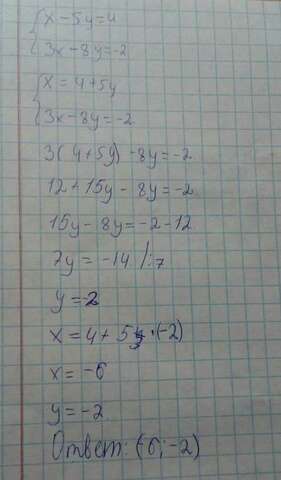 {x-5y=4
3x-8y=-2
{x=4+5y
3x-8y=-2
3(4+5y)-8y=-2
12+15y-8y=-2
15y-8y=-2-12
7y=-14 /:7
y=-2
x=4+5·(-2)
x=-6
y=-2
Ответ: (6;-2)